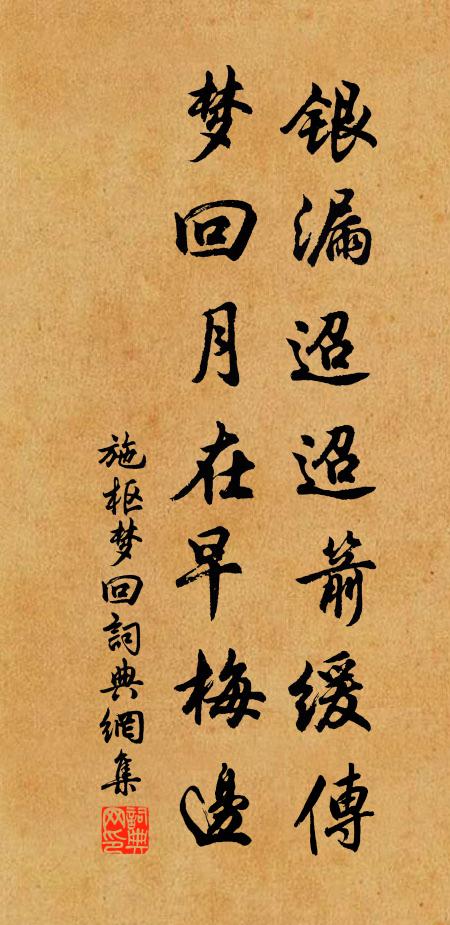 银漏迢迢箭缓傳
梦回月在早梅邊
施枢梦回詞典網集
詞典网印